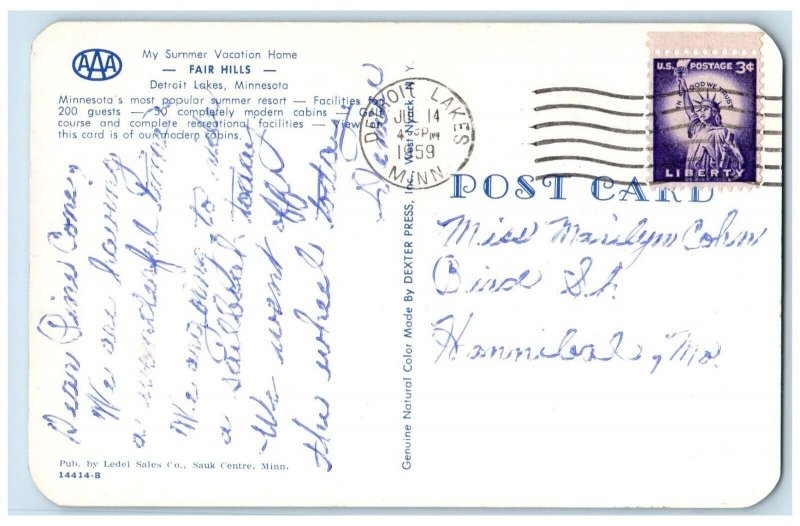 AAA
My Summer Vacation Home
— FAIR HILLS —
Detroit Lakes, Minnesota
Minnesota's most popular summer resort — Facilities for
200 guests — 30 completely modern cabins — Golf
course and complete recreational facilities — View
this card is of our modern cabins.
Dear Pine Cone,
We are having
a wonderful time.
We are going to
a sailboat today
We went off
the wheel
Pub. by Ledel Sales Co., Sauk Centre, Minn.
14414-B
Genuine Natural Color Made By DEXTER PRESS, Inc., West Nyack, N. Y.
DETROIT LAKES
JUL 14
PM
1959
MINN.
U.S. POSTAGE 3¢
IN GOD WE TRUST
LIBERTY
POST CARD
Miss Marilyn Cohn
Bird St.
Hannibal, Mo.